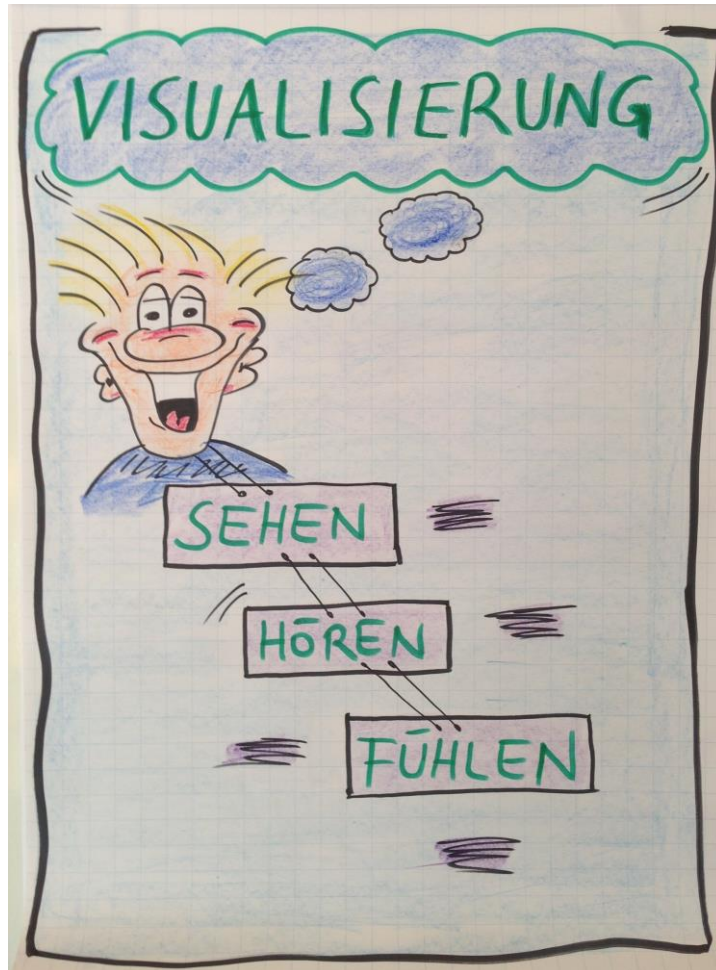 VISUALISIERUNG
SEHEN
HÖREN
FÜHLEN